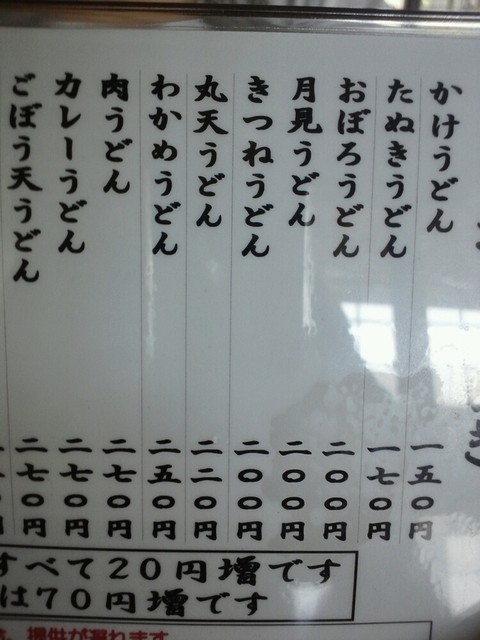 かけうどん 一五〇円
たぬきうどん 一七〇円
おぼろうどん 二〇〇円
月見うどん 二〇〇円
きつねうどん 二〇〇円
丸天うどん 二二〇円
わかめうどん 二五〇円
肉うどん 二七〇円
カレーうどん 二七〇円
ごぼう天うどん 二七〇円
すべて20円増です
は70円増です
提供が遅れます